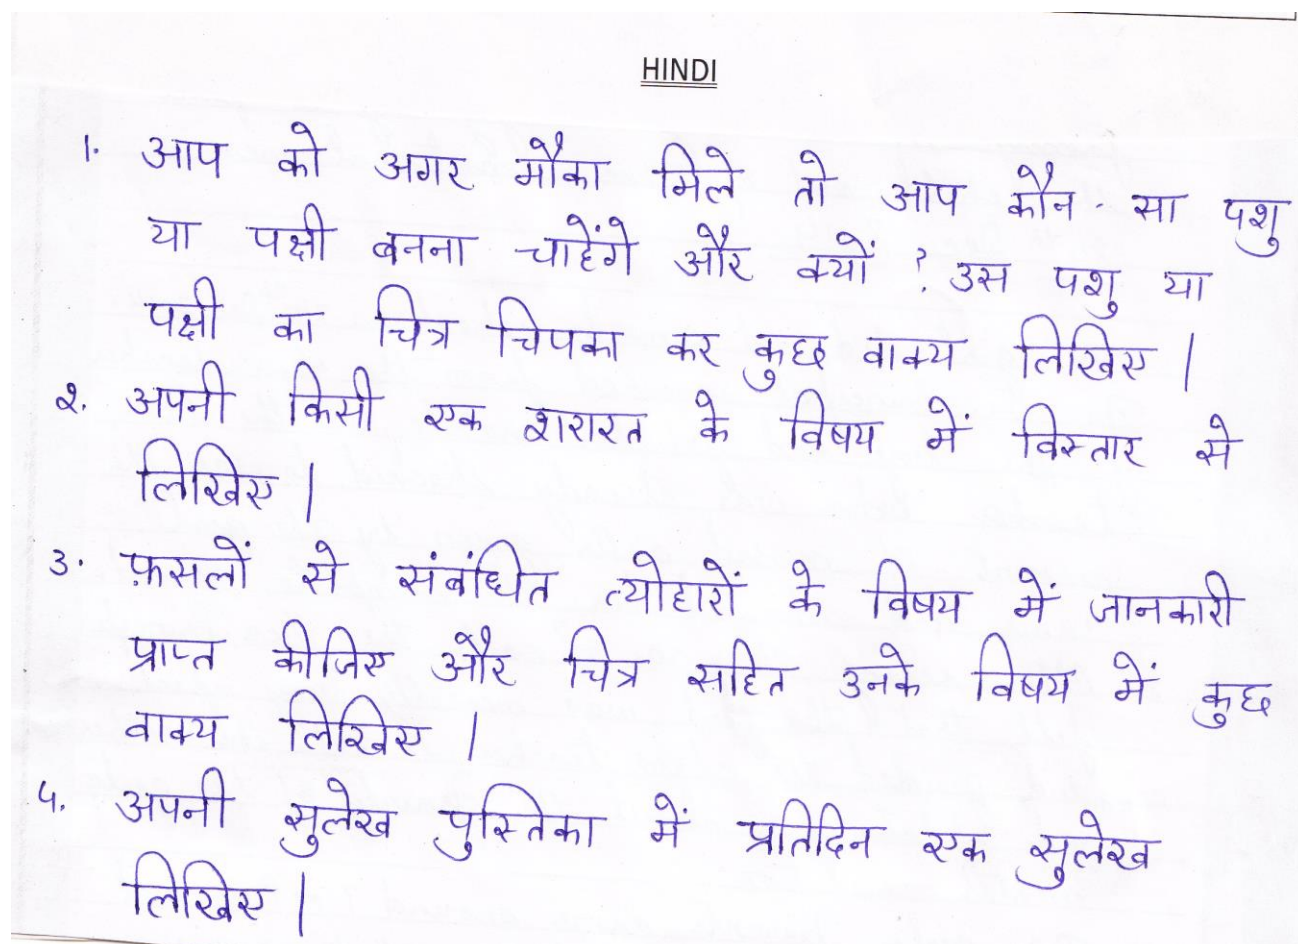 HINDI
1. आप को अगर मौका मिले तो आप कौन-सा पशु
या पक्षी बनना चाहेंगे और क्यों ? उस पशु या
पक्षी का चित्र चिपका कर कुछ वाक्य लिखिए |
२. अपनी किसी एक शरारत के विषय में विस्तार से
लिखिए |
3. फ़सलों से संबंधित त्योहारों के विषय में जानकारी
प्राप्त कीजिए और चित्र सहित उनके विषय में कुछ
वाक्य लिखिए |
4. अपनी सुलेख पुस्तिका में प्रतिदिन एक सुलेख
लिखिए |